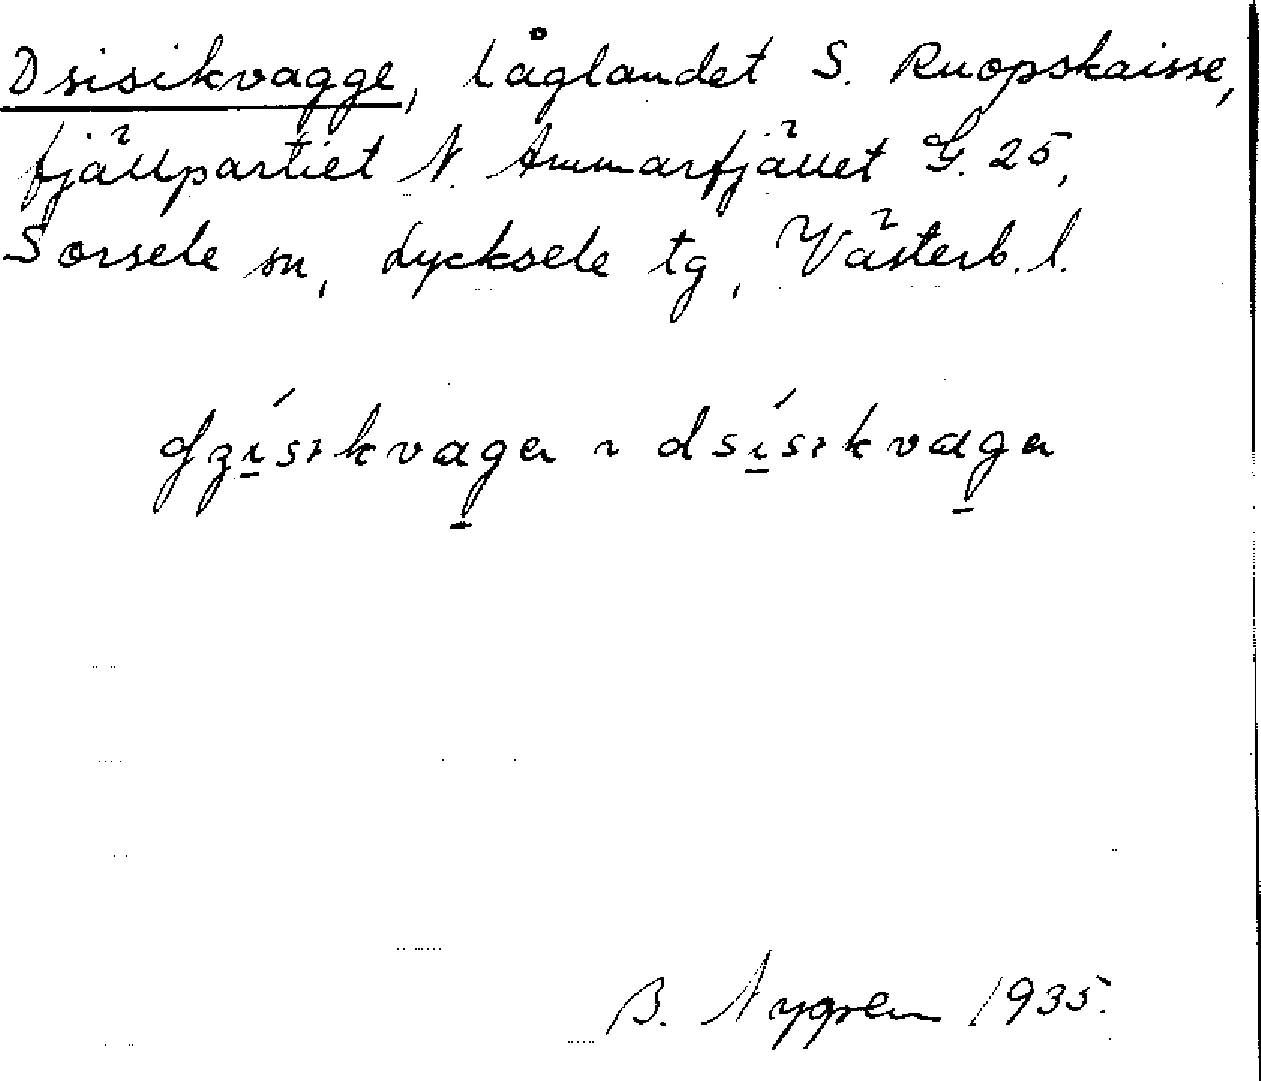 Dsisikvagge, låglandet S. Ruopskaisse,
fjällpartiet N. Ammarfjället G. 25,
Sorsele sn, Lycksele tg, Västerb. l.
dsisikvagen
B. Nygren 1935.